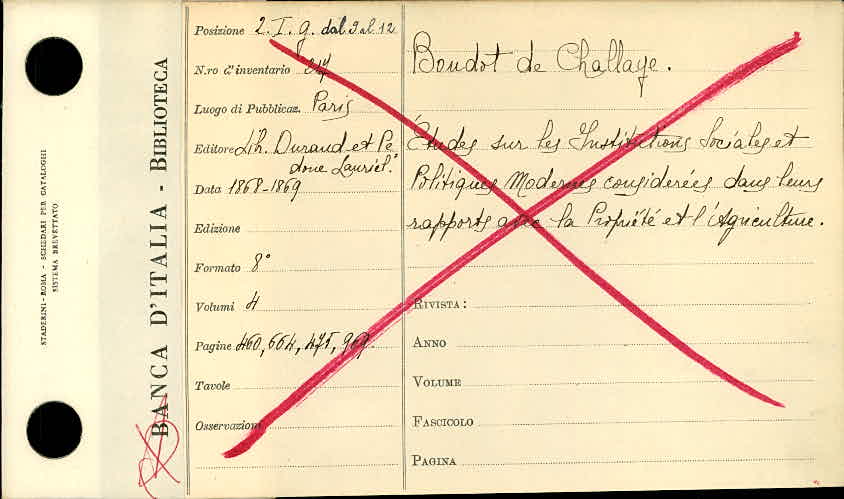 STADERINI-ROMA - SCHEDARI PER CATALOGHI
SISTEMA BREVETTATO
BANCA D'ITALIA - BIBLIOTECA
Posizione 2. I. g. dal 9 al 12
N.ro d'inventario 317
Luogo di Pubblicaz. Paris
Editore Lib. Durand et Pe
done Lauriel.
Data 1868-1869
Edizione
Formato 8°
Volumi 4
Pagine 460, 664, 475, 969.
Tavole
Osservazioni
Boudot de Challaye.
Études sur les Institutions Sociales et
Politiques Modernes considerées dans leurs
rapports avec la Propriété et l'Agriculture.
RIVISTA:
ANNO
VOLUME
FASCICOLO
PAGINA